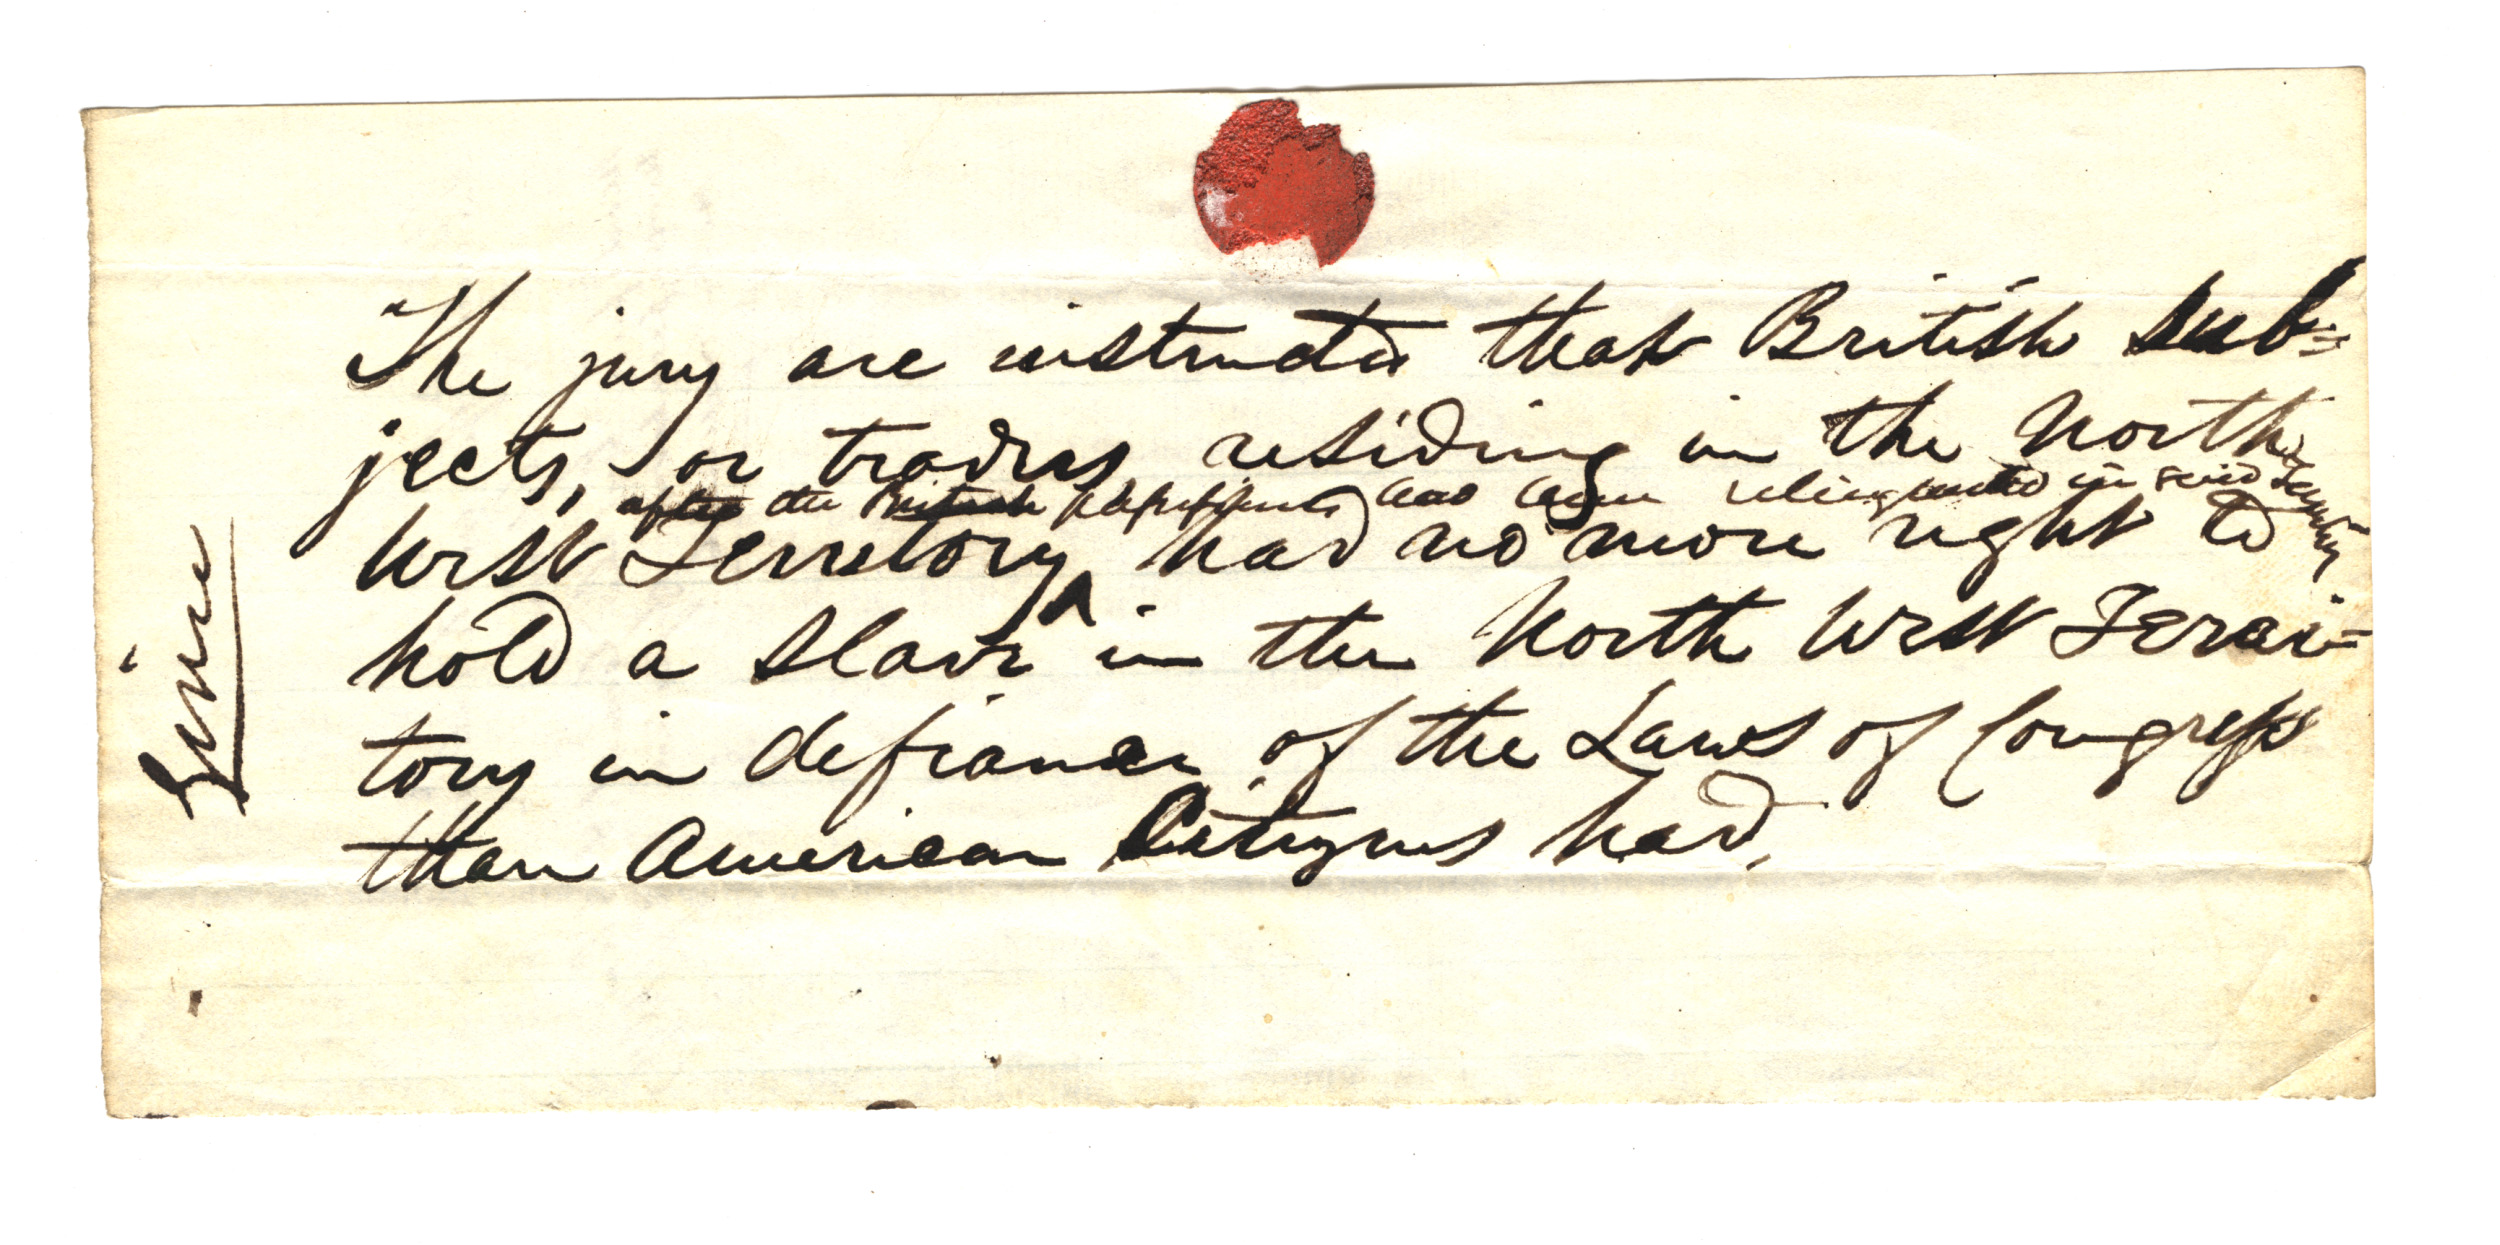 The jury are instructed that British sub=
jects, or traders residing in the North
after the British possessions had been relinquished in said Territory
West Territory ^ had no more right to
hold a slave in the North West Terri=
tory in defiance of the Laws of Congress
than American Citizens had.
Given